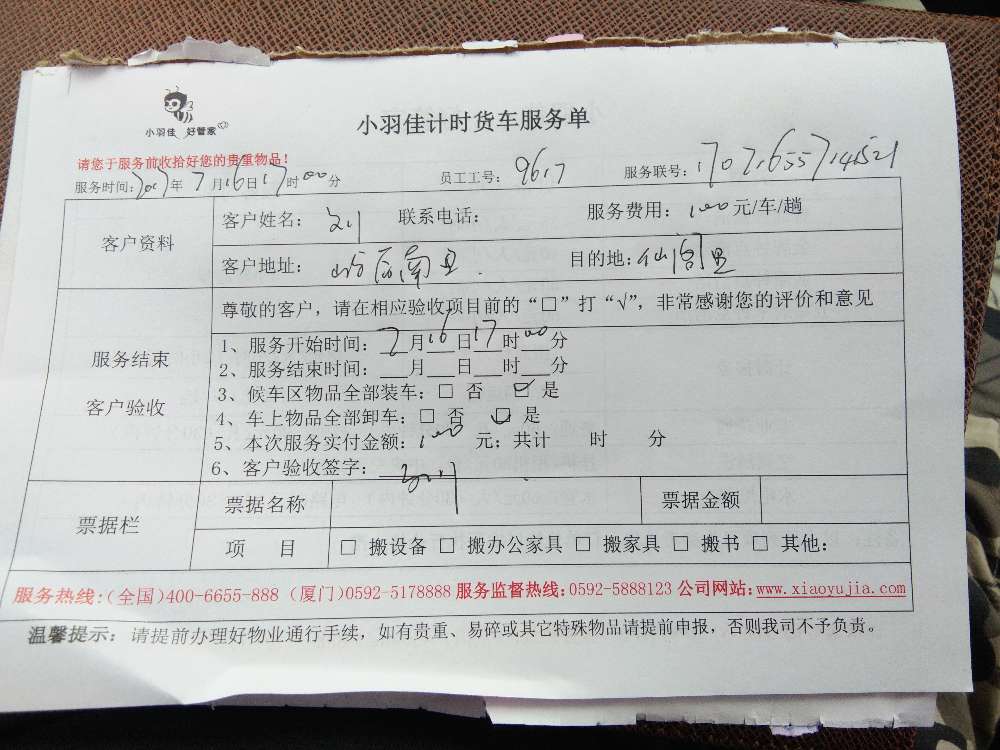 小羽佳 好管家
小羽佳计时货车服务单
请您于服务前收拾好您的贵重物品!
服务时间:2017年 7月16日17时00分 员工工号: 9617 服务联号:
客户资料 客户姓名: 联系电话: 服务费用: 100元/车/趟
客户地址: 后南里 目的地:仙阁里
尊敬的客户,请在相应验收项目前的“□”打“√”,非常感谢您的评价和意见
服务结束
客户验收
1、服务开始时间: 7月16日17时00分
2、服务结束时间: ___月___日___时___分
3、候车区物品全部装车: □ 否 ☑ 是
4、车上物品全部卸车: □ 否 ☑ 是
5、本次服务实付金额: 100 元; 共计 时 分
6、客户验收签字:
票据栏 票据名称 票据金额
项 目 □ 搬设备 □ 搬办公家具 □ 搬家具 □ 搬书 □ 其他:
服务热线:(全国)400-6655-888 (厦门)0592-5178888 服务监督热线:0592-5888123 公司网站:www.xiaoyujia.com
温馨提示: 请提前办理好物业通行手续,如有贵重、易碎或其它特殊物品请提前申报,否则我司不予负责。